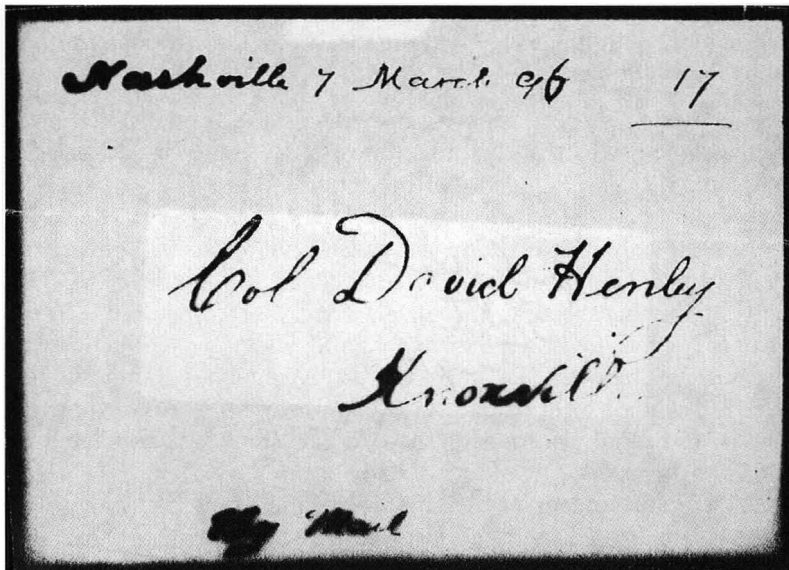 Nashville 7 March 96 17
Col David Henley
Knoxville
By Mail